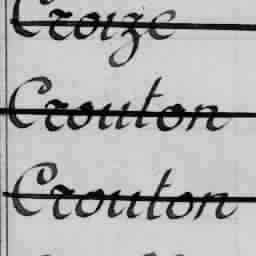 Croize
Crouton
Crouton